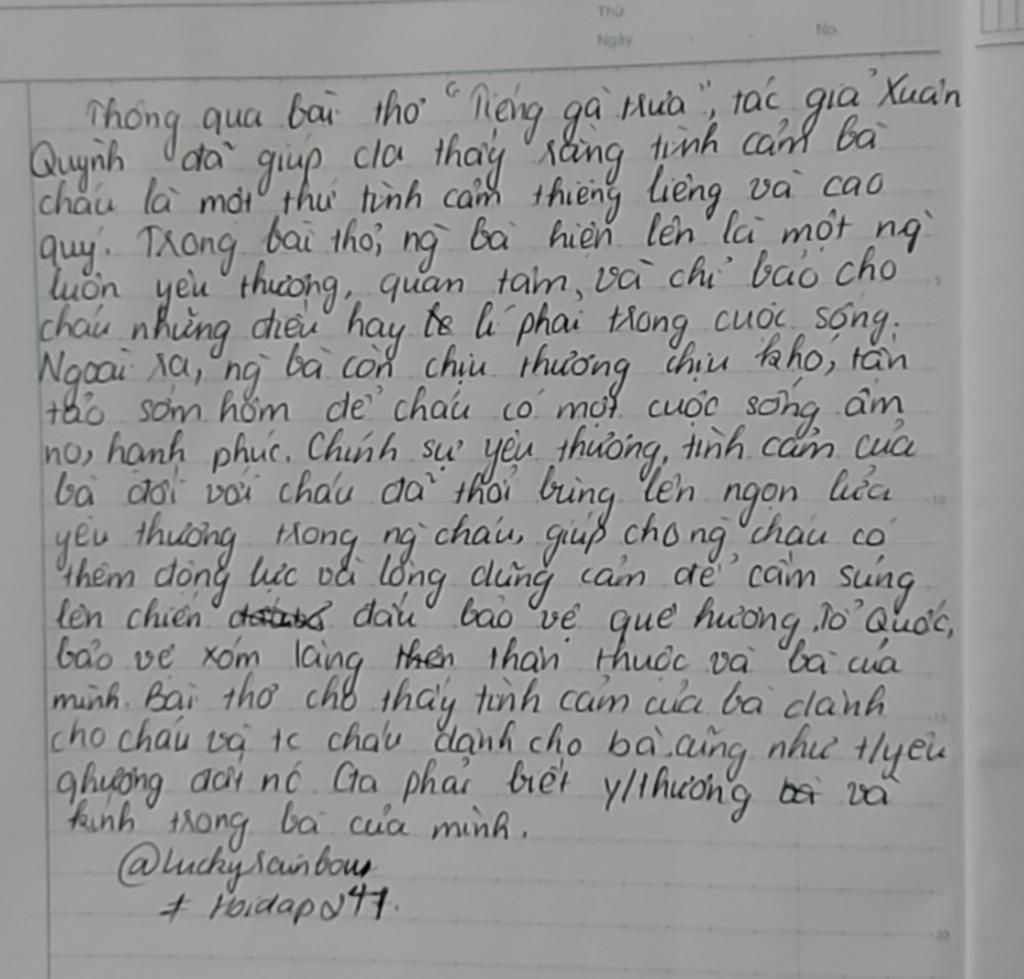 Thứ
Ngày No.
Thông qua bài thơ "Tiếng gà trưa", tác giả Xuân
Quỳnh đã giúp cta thấy rằng tình cảm bà
cháu là một thứ tình cảm thiêng liêng và cao
quý. Trong bài thơ, ng` bà hiện lên là một ng`
luôn yêu thương, quan tâm, và chỉ bảo cho
cháu những điều hay lẽ phải trong cuộc sống.
Ngoài ra, ng` bà còn chịu thương chịu khó, tần
tảo sớm hôm để cháu có một cuộc sống ấm
no, hạnh phúc. Chính sự yêu thương, tình cảm của
bà đối với cháu đã thổi bùng lên ngọn lửa
yêu thương trong ng` cháu, giúp cho ng` cháu có
thêm động lực và lòng dũng cảm để cầm súng
lên chiến đấu bảo vệ quê hương, Tổ Quốc,
bảo vệ xóm làng thân thuộc và bà của
mình. Bài thơ cho thấy tình cảm của bà dành
cho cháu và tc cháu dành cho bà cũng như t/yêu
qhương đất nc. Cta phải biết y/thương và
kính trọng bà của mình.
@luckyrainbow
# Hoidap247.